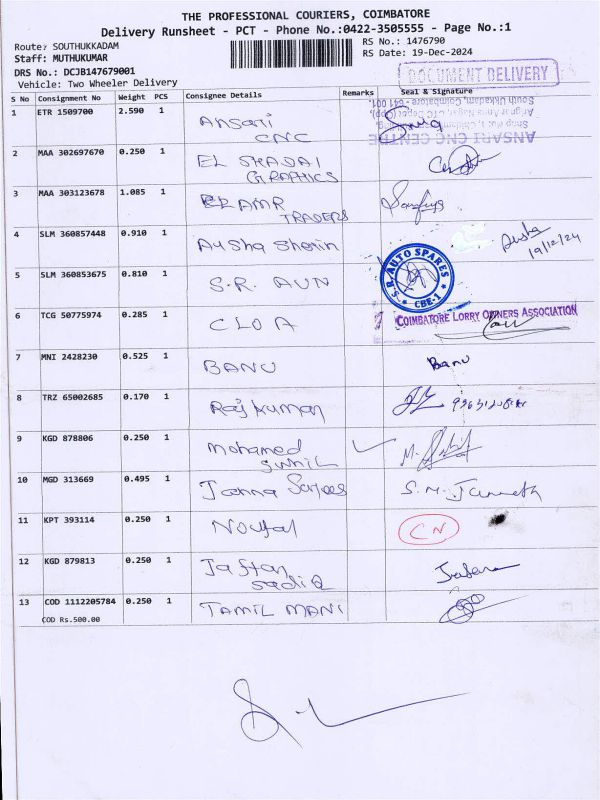 THE PROFESSIONAL COURIERS, COIMBATORE
Delivery Runsheet - PCT - Phone No.:0422-3505555 - Page No.:1
Route: SOUTHUKKADAM
RS No.: 1476790
Staff: MUTHUKUMAR
RS Date: 19-Dec-2024
DRS No.: DCJB147679001
Vehicle: Two Wheeler Delivery
DOCUMENT DELIVERY
S No Consignment No Weight PCS Consignee Details Remarks Seal & Signature
1 ETR 1509700 2.590 1 Ansari
CNC
ANSARI CNC CENTRE
South Ukkadam, Coimbatore - 641 001.
2 MAA 302697670 0.250 1 EL SHADAI
GRAPHICS
3 MAA 303123678 1.085 1 ELAMR
TRADERS
4 SLM 360857448 0.910 1 Aysha Sherin
Aysha
19/12/24
5 SLM 360853675 0.810 1 S.R. AUN
S.R. AUTO SPARES
* CBE-1 *
6 TCG 50775974 0.285 1 CLOA
COIMBATORE LORRY OWNERS ASSOCIATION
7 MNI 2428230 0.525 1 BANU Banu
8 TRZ 65002685 0.170 1 Rajkumar
9 KGD 878806 0.250 1 mohamed
10 MGD 313669 0.495 1 Janna
11 KPT 393114 0.250 1 Noufal CN
12 KGD 879813 0.250 1 Jaffar
SadiQ
13 COD 1112205784 0.250 1 TAMIL MANI
COD Rs.500.00